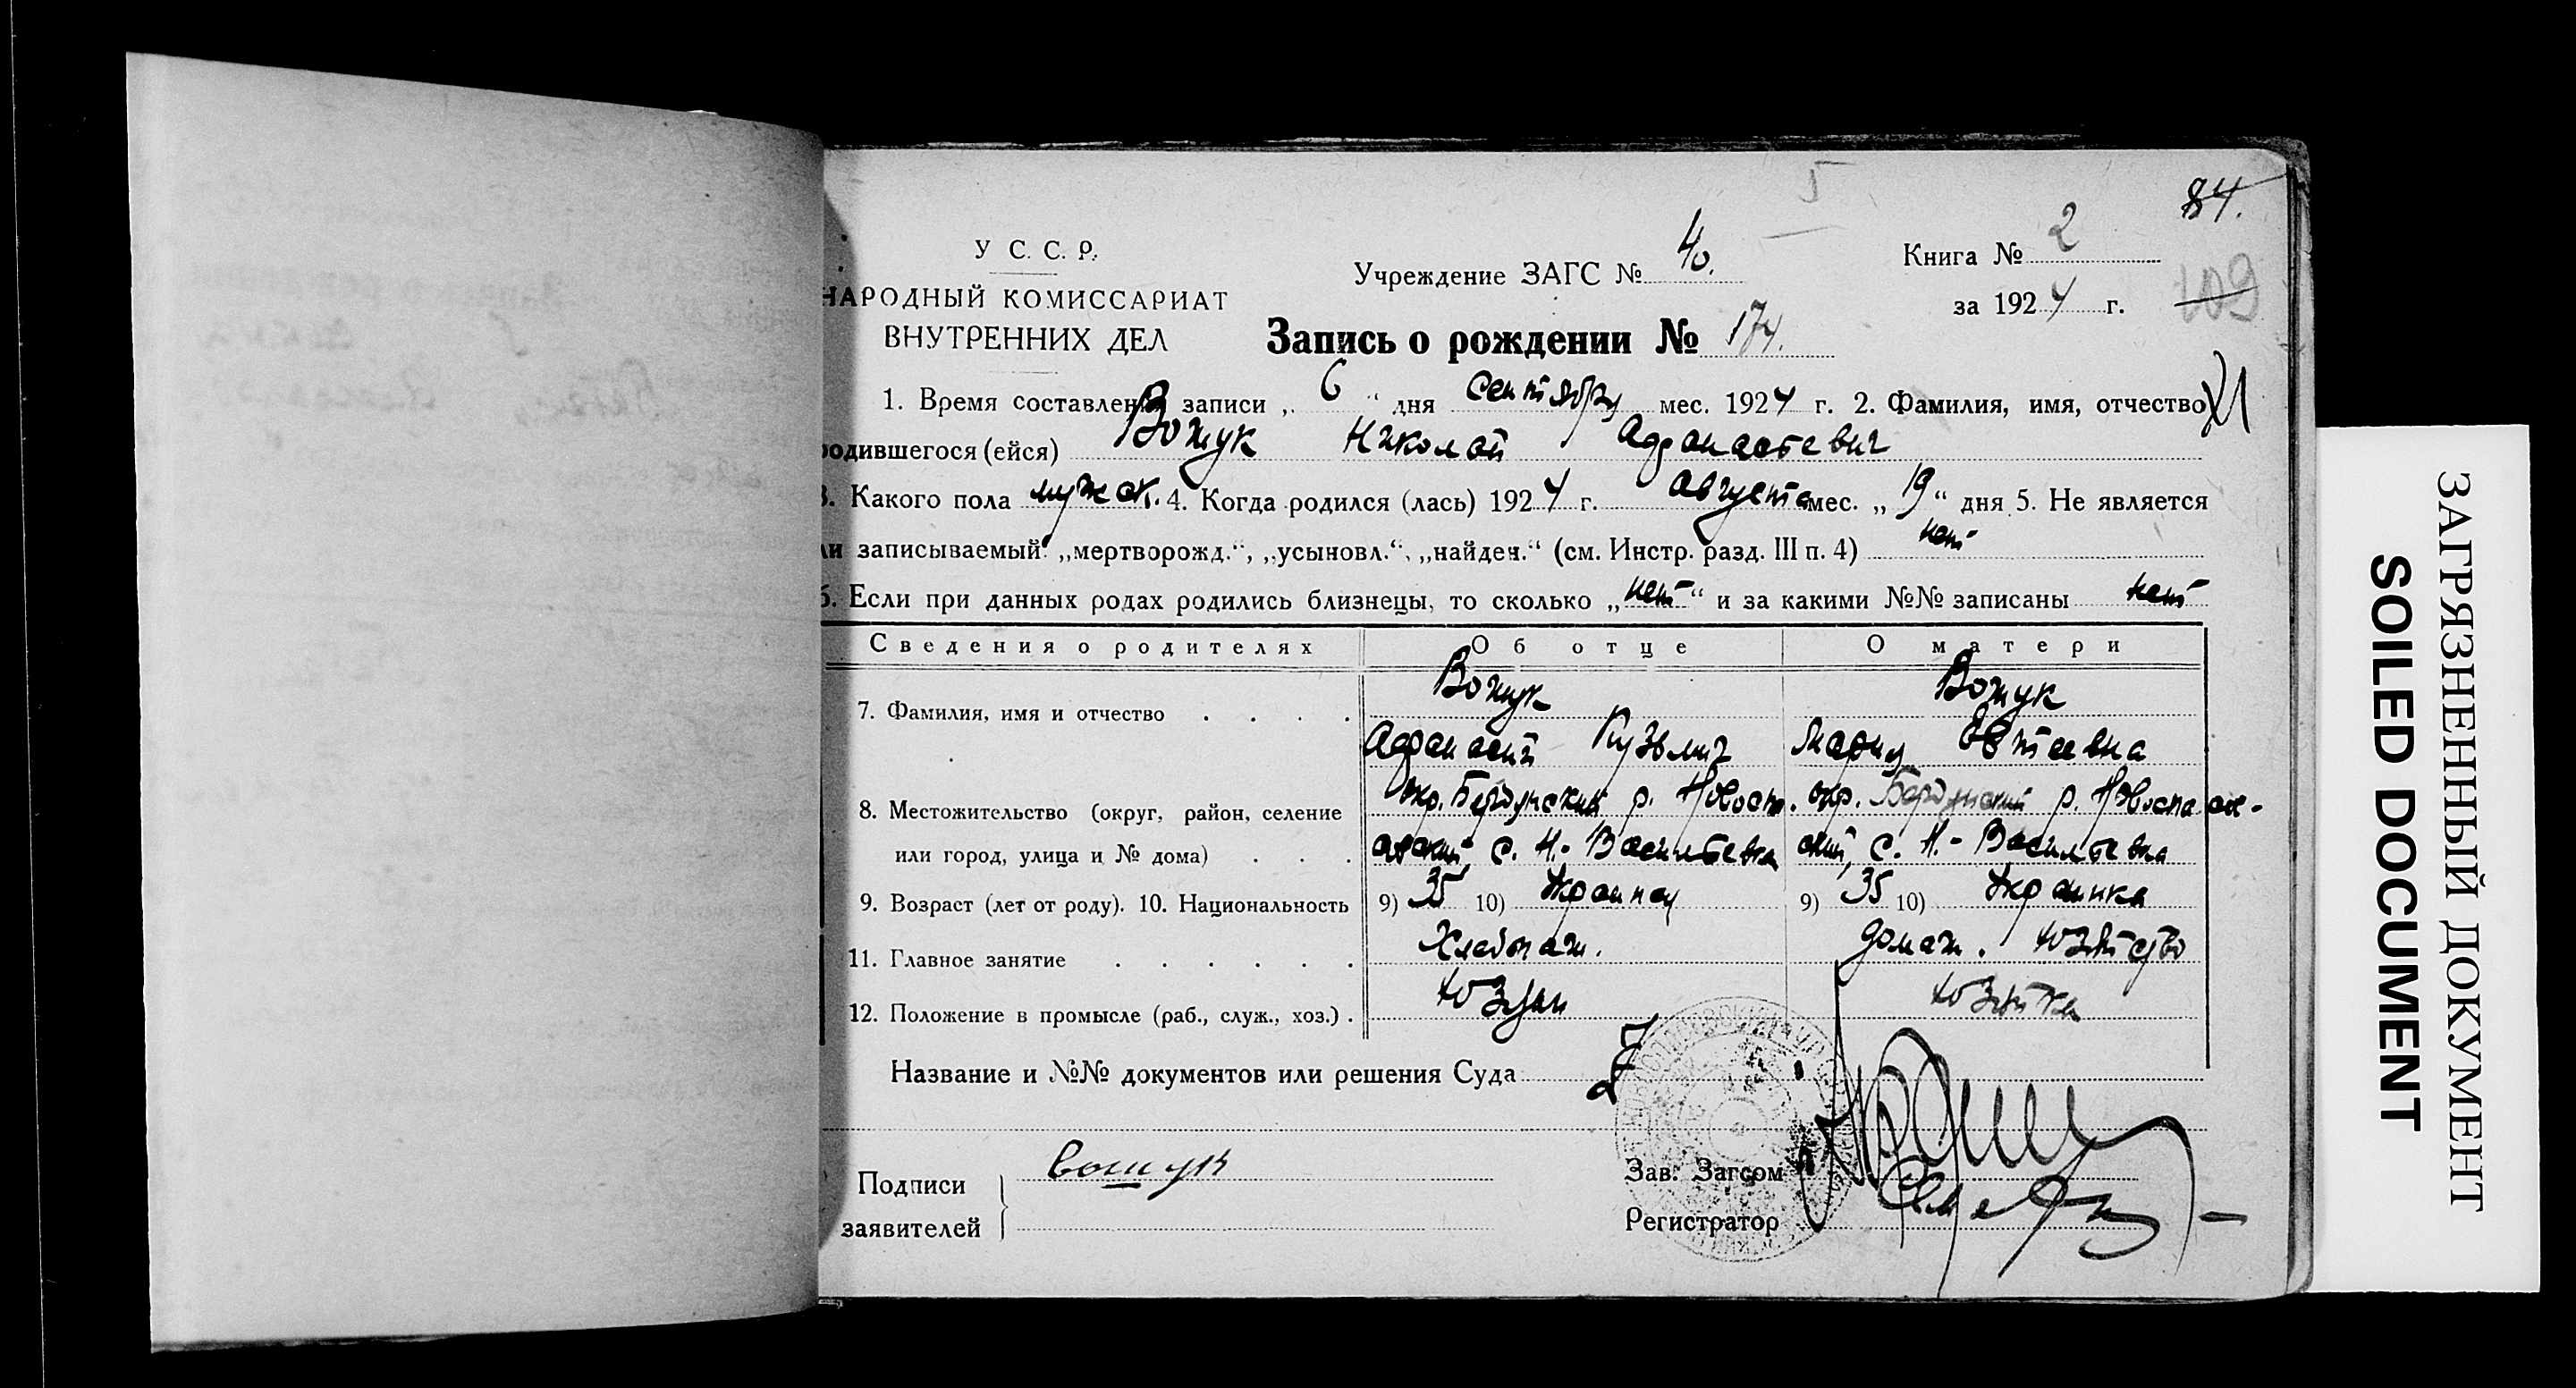 84.
У С. С. Р.
НАРОДНЫЙ КОМИССАРИАТ
ВНУТРЕННИХ ДЕЛ
Учреждение ЗАГС № 40.
Книга № 2
за 1924 г.
109
Запись о рождении № 174.
1. Время составления записи „ 6 “ дня Сентября мес. 1924 г. 2. Фамилия, имя, отчество
родившегося (ейся) Вожук Николай Афанастевич
3. Какого пола мужск. 4. Когда родился (лась) 1924 г. Августа мес. „ 19 “ дня 5. Не является
ли записываемый: „мертворожд.“, „усыновл.“, „найден.“ (см. Инстр. разд. III п. 4) нет
6. Если при данных родах родились близнецы, то сколько „ нет “ и за какими №№ записаны нет
Сведения о родителях Об отце О матери
7. Фамилия, имя и отчество . . . . Вожук Вожук
Афанасий Кузьмич Мария Евтеевна
8. Местожительство (округ, район, селение окр. Бердянский р. Новоспа- окр. Бердянский р. Новоспасов-
или город, улица и № дома) . . . с. Н.-Васильевка ский, с. Н.-Васильевка
9. Возраст (лет от роду). 10. Национальность 9) 35 10) Украинец 9) 35 10) Украинка
11. Главное занятие . . . . . . Хлебопаш. домаш. хозяйство
12. Положение в промысле (раб., служ., хоз.) . хозяин хозяйка
Название и №№ документов или решения Суда
Подписи
заявителей
Вошук
Зав. Загсом
Регистратор
ЗАГРЯЗНЕННЫЙ ДОКУМЕНТ
SOILED DOCUMENT